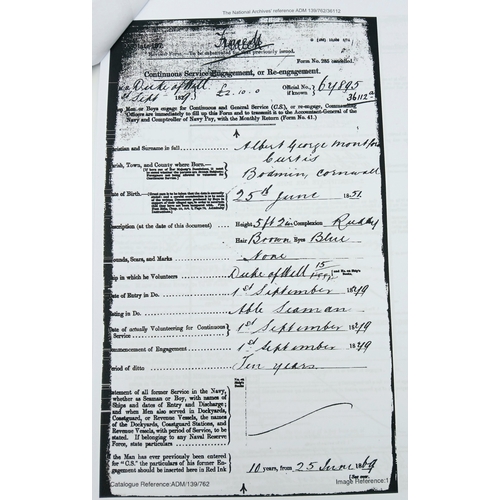 The National Archives' reference ADM 139/762/36112
Form No. 285 cancelled.
Continuous Service Engagement, or Re-engagement.
Duke of Well. Official No. 64895
1st Sept 1879. £2.10.0 if known 36112a
Men or Boys engage for Continuous and General Service (C.S.), or re-engage, Commanding
Officers are immediately to fill up this Form and to transmit it to the Accountant-General of the
Navy and Comptroller of Navy Pay, with the Monthly Return (Form No. 41.)
Christian and Surname in full Albert George Montford
Curtis
Parish, Town, and County where Born Bodmin, Cornwall
Date of Birth 25th June 1851.
Description (at the date of this document) Height 5ft 2in Complexion Ruddy
Hair Brown Eyes Blue
Wounds, Scars, and Marks None
Ship in which he Volunteers Duke of Well 15/
Date of Entry in Do. 1st September 1879
Rating in Do. Able Seaman
Date of actually Volunteering for Continuous Service 1st September 1879
Commencement of Engagement 1st September 1879
Period of ditto Ten years
Statement of all former Service in the Navy,
whether as Seaman or Boy, with names of
Ships and dates of Entry and Discharge;
and when Men also served in Dockyards,
Coastguard, or Revenue Vessels, the names of
Dockyards, Coastguard Stations, and Revenue
Vessels, with period of Service, to be
stated. If belonging to any Naval Reserve
Force, state particulars
If the Man has ever previously been entered
for "C.S." the particulars of his former Engagement
should be inserted here in Red Ink
10 years, from 25 June 1869
[See over.
Catalogue Reference:ADM/139/762 Image Reference:1